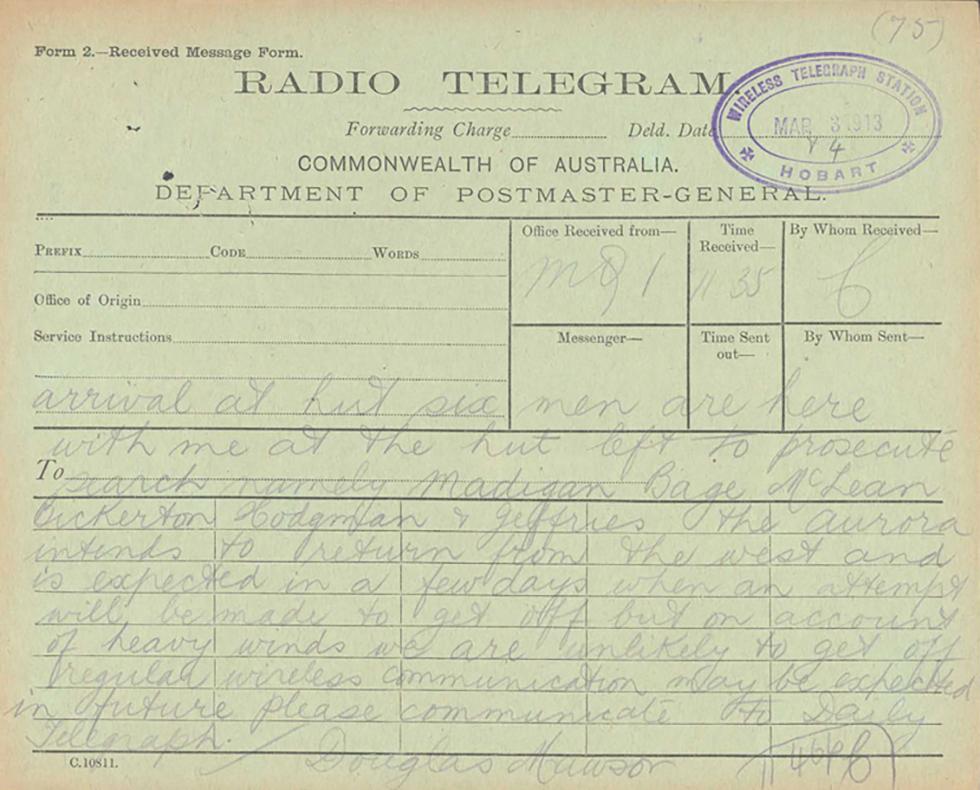 (75)
Form 2.—Received Message Form.
RADIO TELEGRAM.
WIRELESS TELEGRAPH STATION
MAR 3 1913
4
HOBART
Forwarding Charge Deld. Date
COMMONWEALTH OF AUSTRALIA.
DEPARTMENT OF POSTMASTER-GENERAL.
PREFIX CODE WORDS
Office Received from—
Time Received—
By Whom Received—
11 35
C
Office of Origin
Service Instructions
Messenger—
Time Sent out—
By Whom Sent—
arrival at hut six men are here
with me at the hut left to prosecute
To
search namely Madigan Bage McLean
Bickerton Hodgman & Jeffries the Aurora
intends to return from the west and
is expected in a few days when an attempt
will be made to get off but on account
of heavy winds we are unlikely to get off
regular wireless communication may be expected
in future please communicate to Daily
Telegraph.
Douglas Mawson
C.10811.